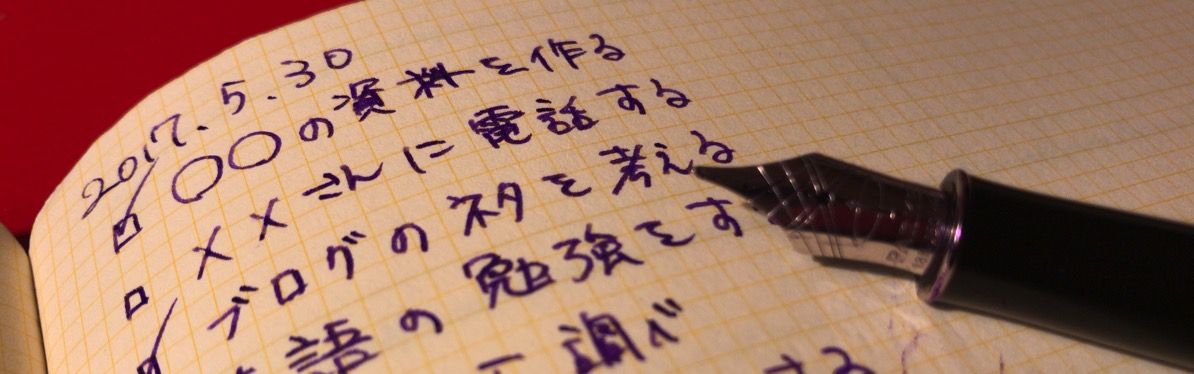 2017.5.30
☑ ○○の資料を作る
□ ××さんに電話する
☑ ブログのネタを考える
語の勉強をす
調べ
する